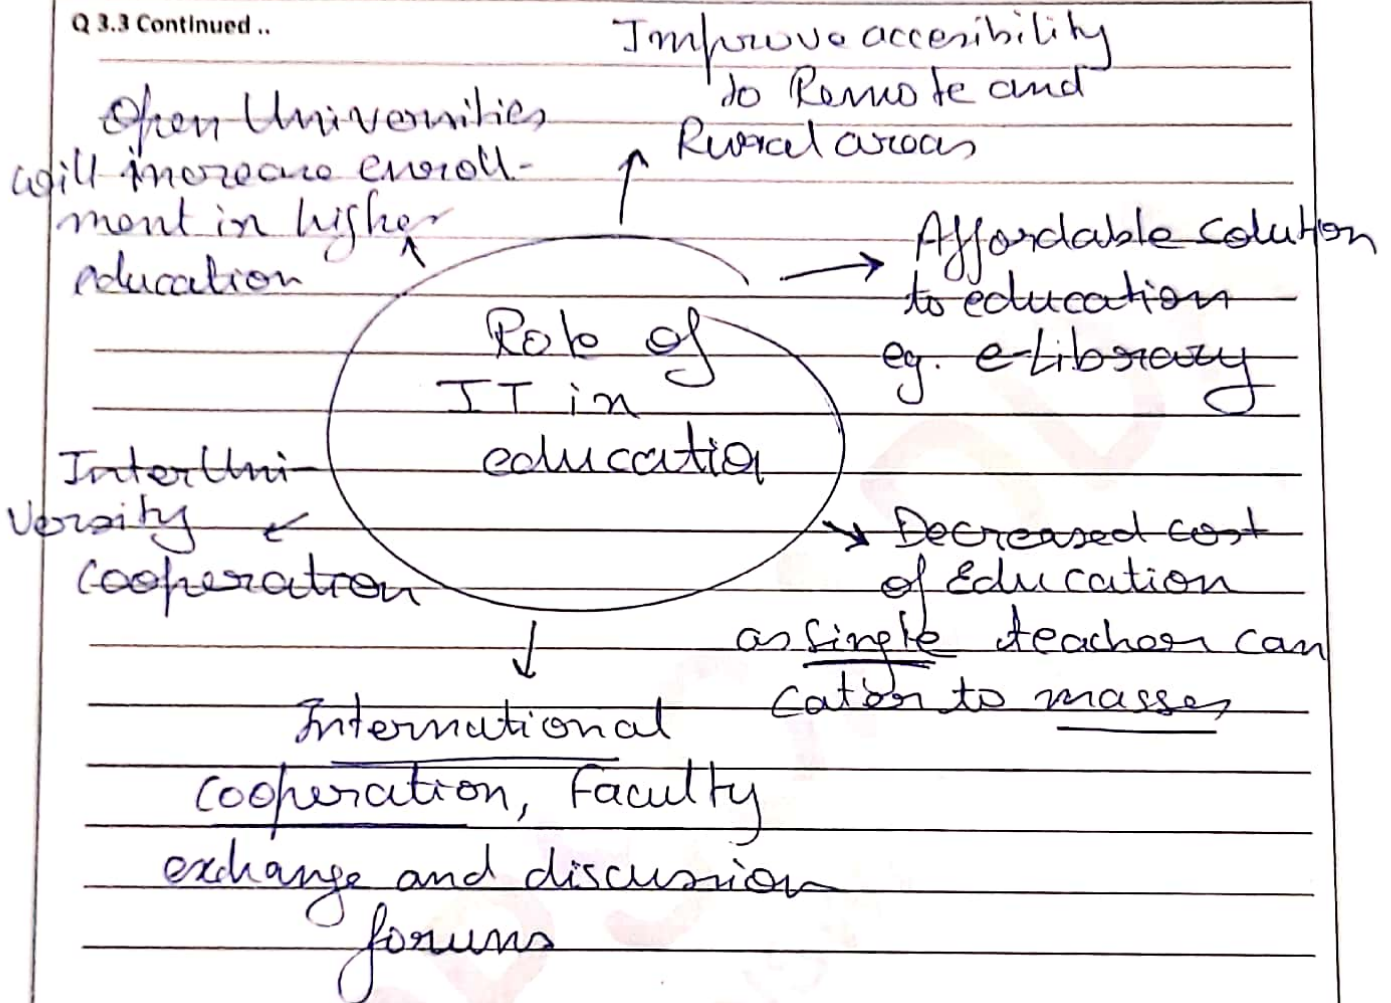 Q 3.3 Continued ..
Improve accesibility
to Remote and
Rural areas
Open Universities
will increase enroll-
ment in higher
education
Affordable solution
to education
eg. e-Library
Role of
IT in
education
Inter Uni-
versity
cooperation
Decreased cost
of Education
as single teacher can
cater to masses
International
cooperation, Faculty
exchange and discussion
forums